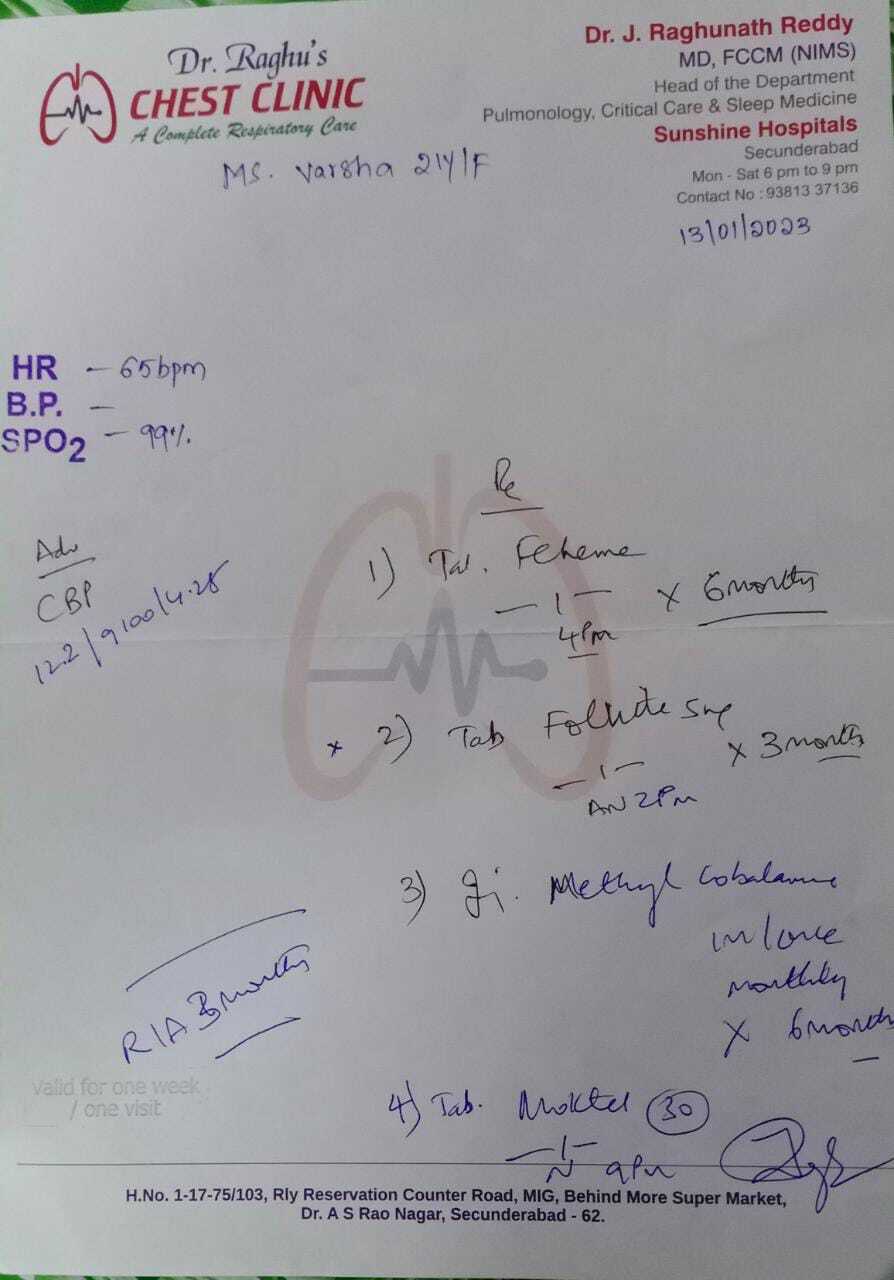 Dr. Raghu's
CHEST CLINIC
A Complete Respiratory Care
Dr. J. Raghunath Reddy
MD, FCCM (NIMS)
Head of the Department
Pulmonology, Critical Care & Sleep Medicine
Sunshine Hospitals
Secunderabad
Mon - Sat 6 pm to 9 pm
Contact No : 93813 37136
Ms. Varsha 21Y/F
13/01/2023
HR - 65bpm
B.P. -
SPO2 - 99%
Rx
Adv
CBP
12.2/9100/4.28
1) Tab. Feheme
— 1 — x 6 months
4 Pm
x 2) Tab
— 1 — x 3 month
AN 2 Pm
3) Methyl cobalamine
im/once
monthly
x 6 month
R/A 3 months
valid for one week
/ one visit
4) Tab. 30
— 1 —
N 9 Pm
H.No. 1-17-75/103, Rly Reservation Counter Road, MIG, Behind More Super Market,
Dr. A S Rao Nagar, Secunderabad - 62.